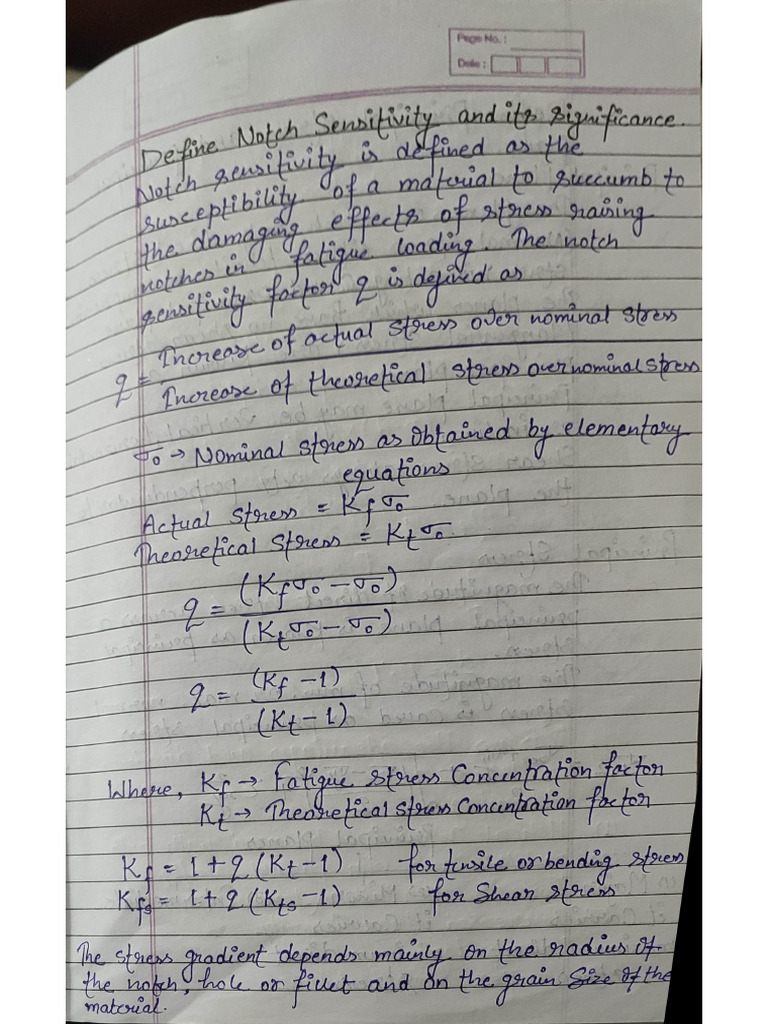 Page No. :
Date :
Define Notch Sensitivity and its significance.
Notch sensitivity is defined as the
susceptibility of a material to succumb to
the damaging effects of stress raising
notches in fatigue loading. The notch
sensitivity factor q is defined as
q = Increase of actual stress over nominal stress
Increase of theoretical stress over nominal stress
σo → Nominal stress as obtained by elementary
equations
Actual stress = Kf σo
Theoretical stress = Kt σo.
q = (Kf σo - σo)
(Kt σo - σo)
q = (Kf - 1)
(Kt - 1)
Where, Kf → Fatigue stress Concentration factor
Kt → Theoretical stress Concentration factor
Kf = 1 + q (Kt - 1) for tensile or bending stress
Kfs = 1 + q (Kts - 1) for Shear stress
The stress gradient depends mainly on the radius of
the notch, hole or fillet and on the grain size of the
material.